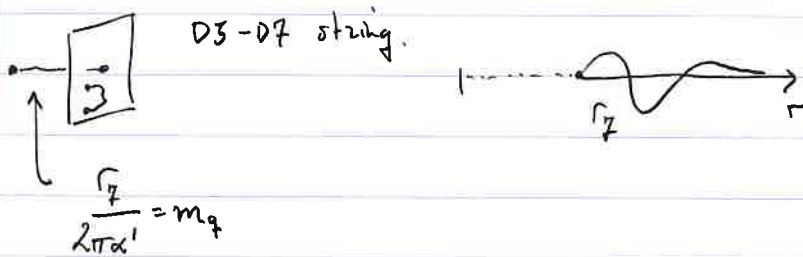 D3-D7 string.
3
r_7
r
r_7 / 2πα' = m_q